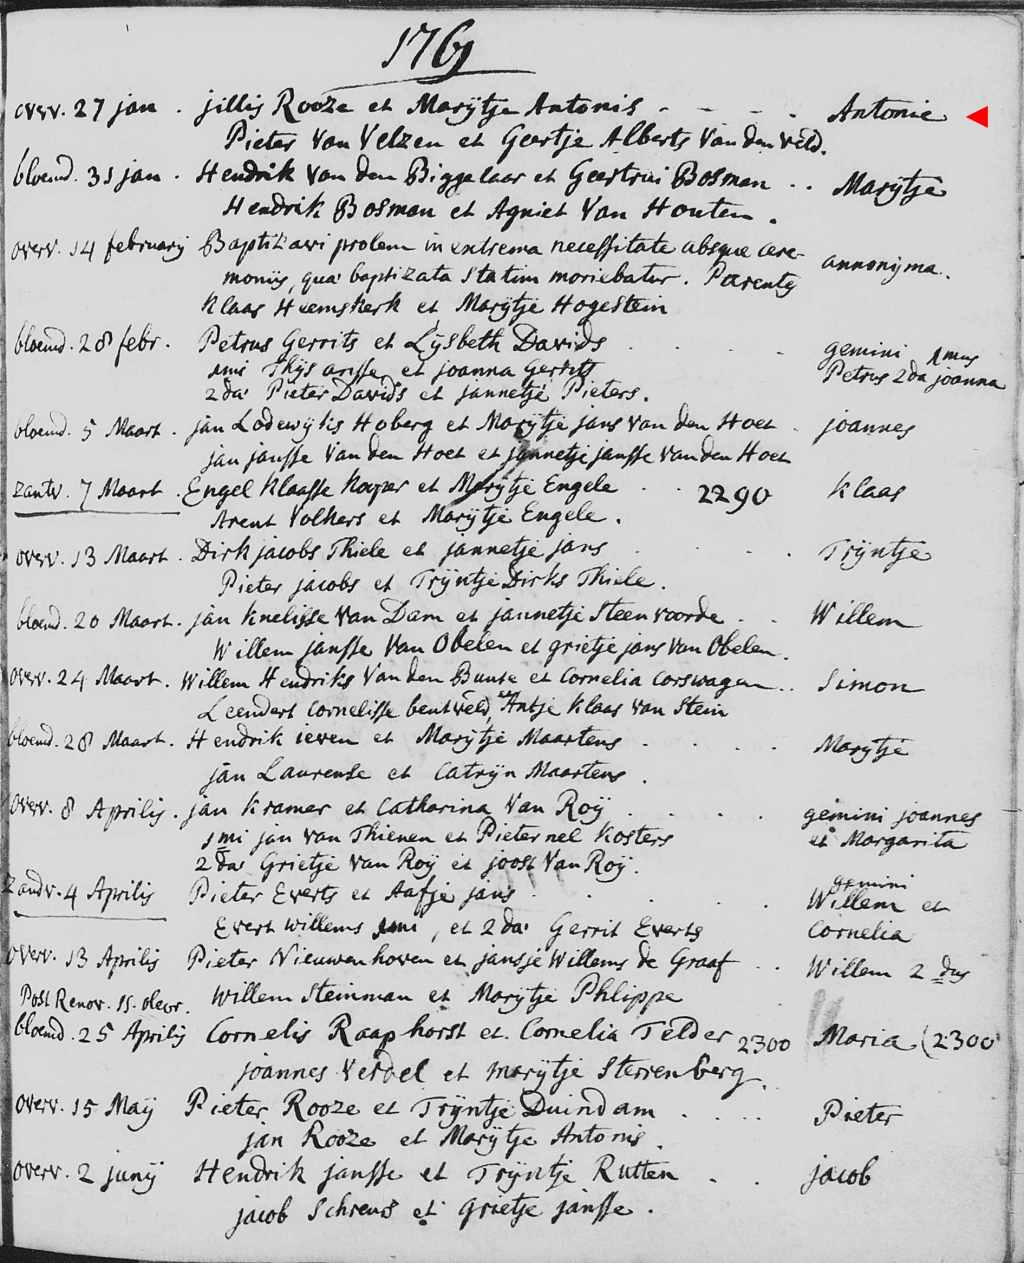 1761
overv. 27 jan. jillis Rooze et Marÿtje Antonis - - - . Antonie
Pieter Van Velzen et Geertje Alberts Van den Veld.
bloemd. 31 jan. Hendrik Van den Biggelaar et Geertrui Bosman .. Marÿtje
Hendrik Bosman et Agniet Van Houten.
overv. 14 februarij Baptizavi prolem in extrema necessitate absque cere-
monijs, qua baptizata statim moriebatur. Parentes annonijma.
Klaas Heemskerk et Marÿtje Hogestein
bloemd. 28 febr. Petrus Gerrits et Lÿsbeth Davids . . . . gemini 1mus
1mi Thÿs arisse et joanna Gerrits Petrus 2da joanna
2da Pieter Davids et jannetje Pieters.
bloemd. 5 Maart. jan Lodewÿks Hoberg et Marÿtje jans van den Hoet . joannes
jan jansse Van den Hoet et jannetje jansse van den Hoet
zantv. 7 Maart. Engel Klaasse Koper et Marÿtje Engele . . 2290 Klaas
Arent Volkers et Marÿtje Engele.
overv. 13 Maart. Dirk jacobs Thiele et jannetje jans . . . . Trÿntje
Pieter jacobs et Trÿntje Dirks Thiele.
bloemd. 20 Maart. jan Knelisse van Dam et jannetje Steenvoorde . . Willem
Willem jansse Van Obelen et grietje jans van Obelen.
overv. 24 Maart. Willem Hendriks Van den Bunte et Cornelia Corswagen .. Simon
Leendert Cornelisse bentveld et Antje Klaas van Stein
bloemd. 28 Maart. Hendrik ieven et Marÿtje Maartens . . . . Marÿtje
jan Laurense et Catrÿn Maartens.
overv. 8 Aprilis. jan Kramer et Catharina Van Roÿ . . . . gemini joannes
1mi jan van Thienen et Pieternel Kosters et Margarita
2da Grietje van Roÿ et joost Van Roÿ.
Zandv. 4 Aprilis Pieter Everts et Aafje jans . . . . gemini Willem et
Evert Willems 1mi, et 2da Gerrit Everts Cornelia
overv. 13 Aprilis Pieter Nieuwenhoven et jansje Willems de Graaf . . Willem 2dus
Post Renov. 15. olevr. Willem Steinman et Marÿtje Phlippe
bloemd. 25 Aprilis Cornelis Raaphorst et Cornelia Telder 2300 Maria (2300
joannes Verdel et marÿtje Sterrenberg.
overv. 15 Maÿ Pieter Rooze et Trÿntje Duindam . . . . Pieter
jan Rooze et Marÿtje Antonis.
overv. 2 junij Hendrik jansse et Trÿntje Rutten . . jacob
jacob Schreus et grietje jansse.